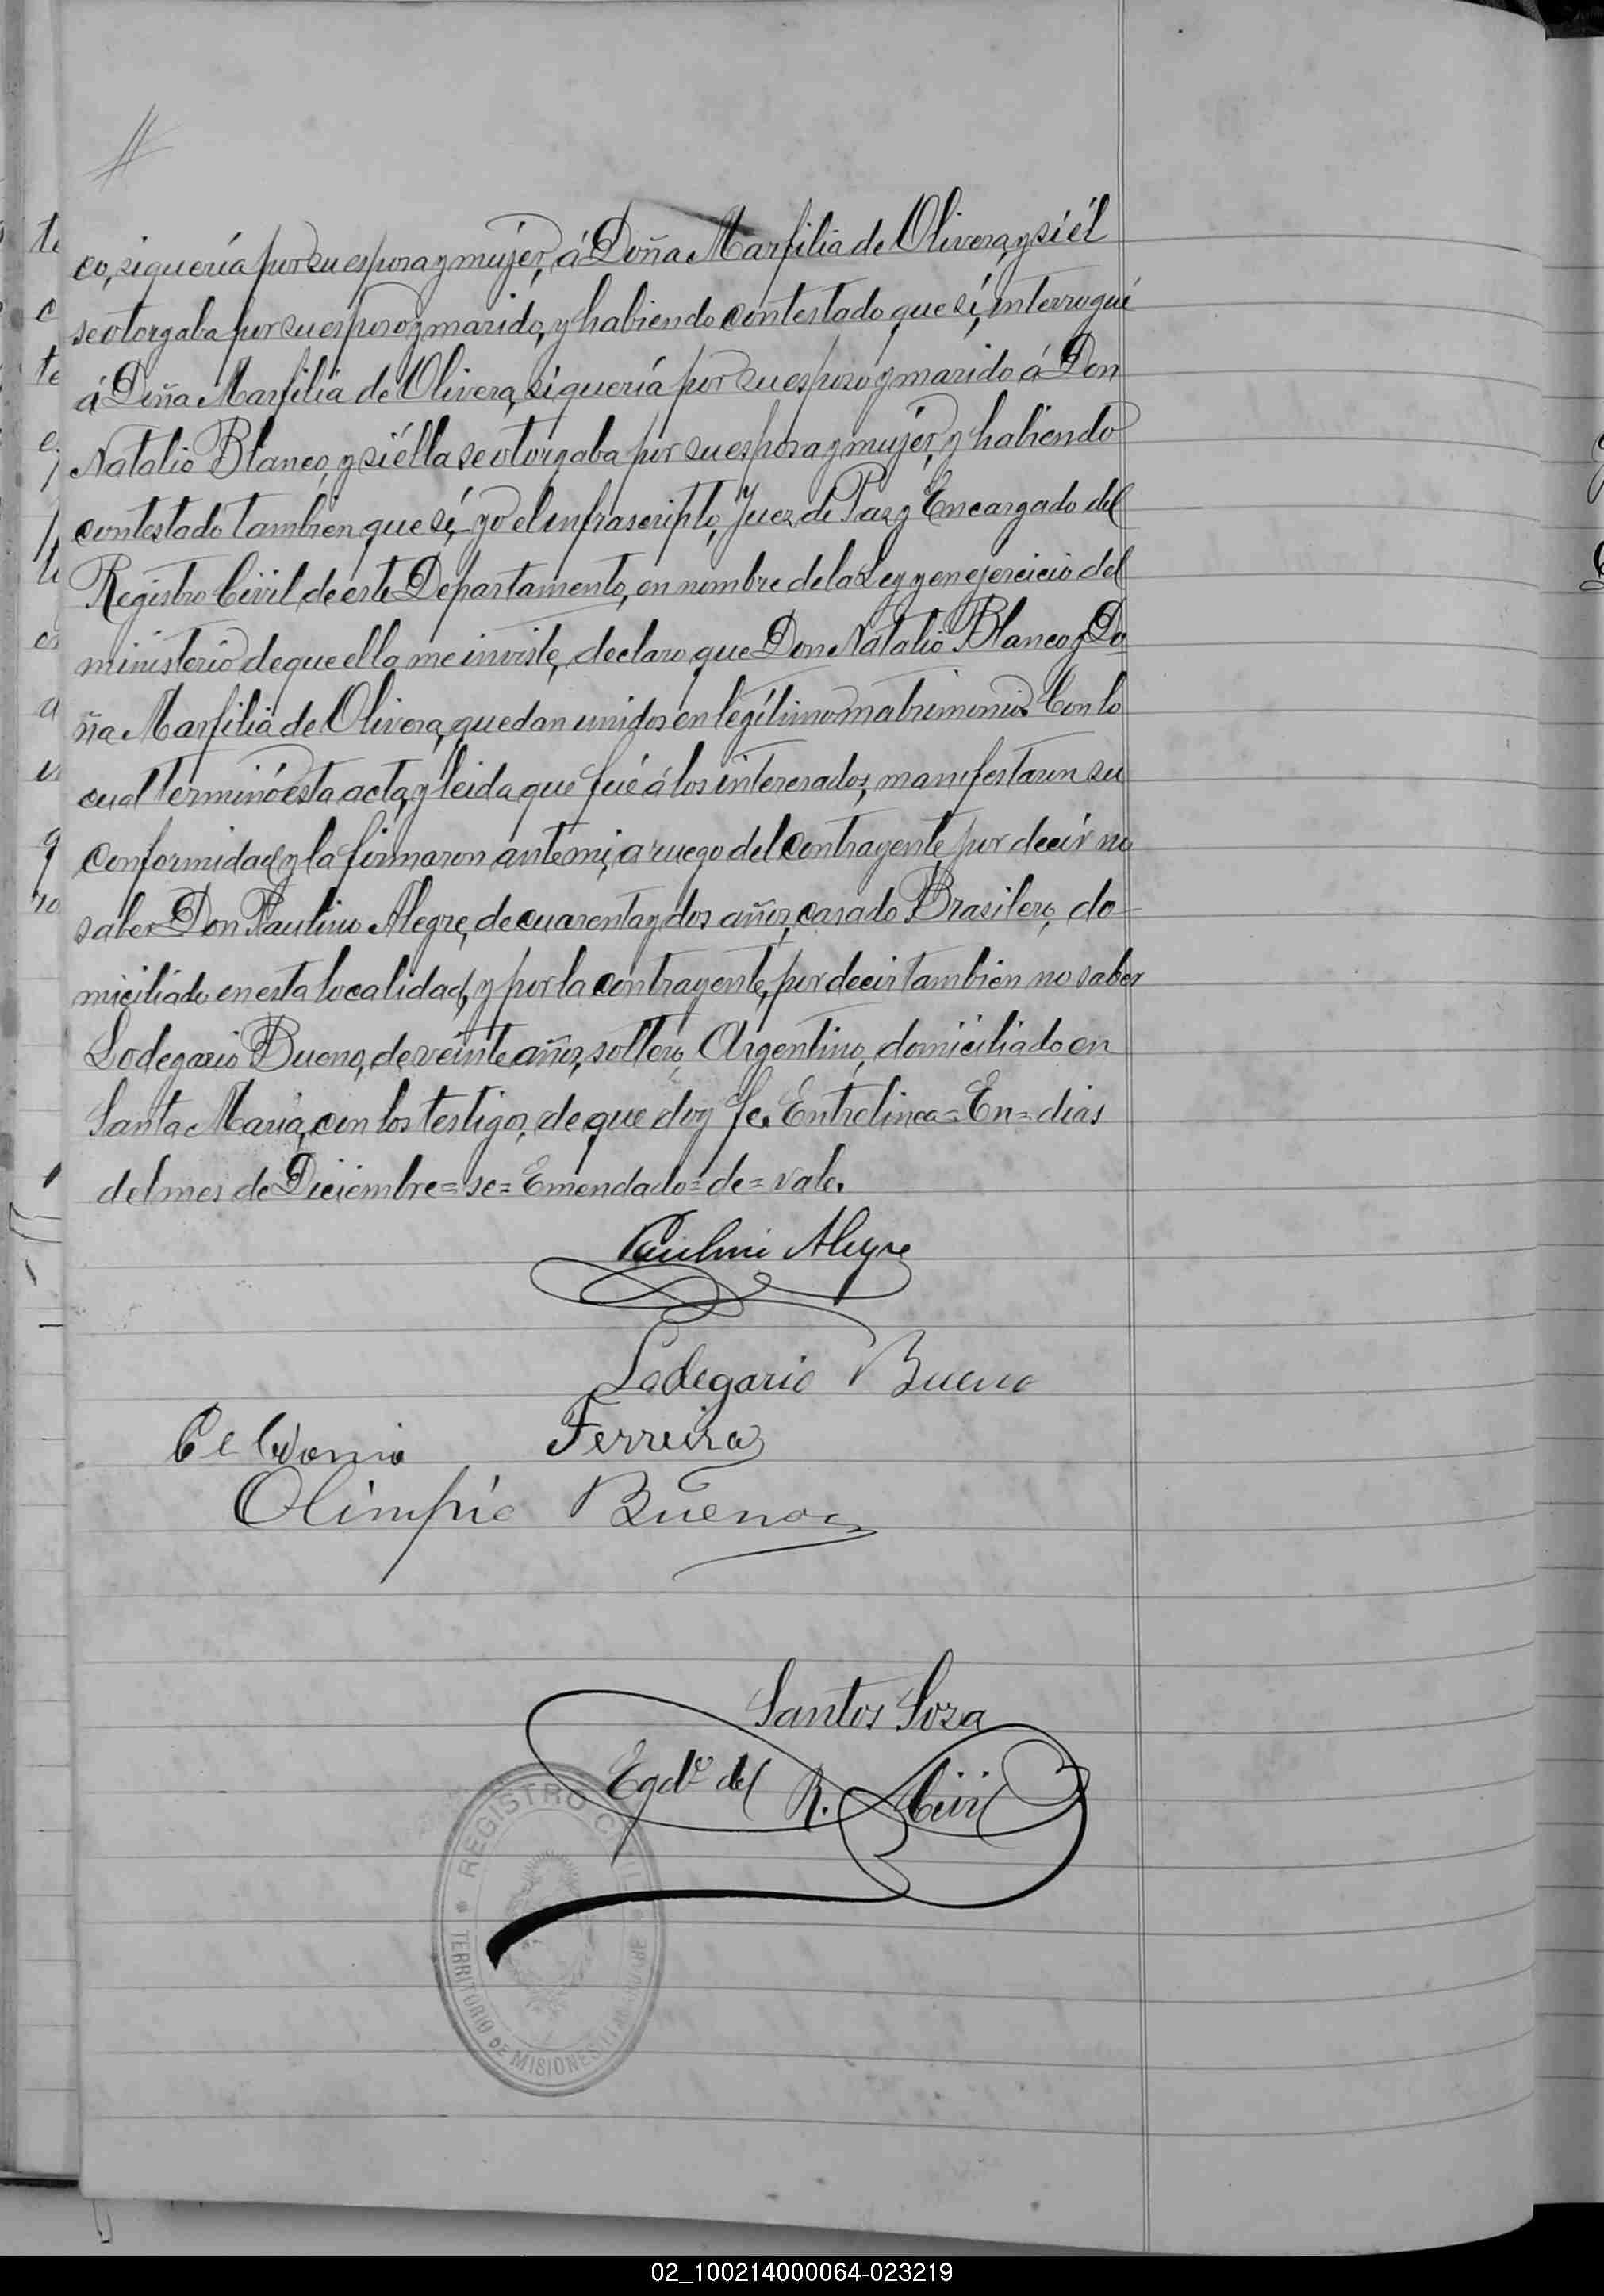 co, si quería por su esposa y mujer, á Doña Marfilia de Olivera, y si él
se otorgaba por su esposo y marido, y habiendo contestado que sí, interrogué
á Doña Marfilia de Olivera, si quería por su esposo y marido á Don
Natalio Blanco, y si élla se otorgaba por su esposa y mujer, y habiendo
contestado tambien que sí, yo el infrascripto, Juez de Paz y Encargado del
Registro Civil de este Departamento, en nombre de la Ley y en ejercicio del
ministerio de que ella me inviste, declaro que Don Natalio Blanco y Do
ña Marfilia de Olivera, quedan unidos en legítimo matrimonio. Con lo
cual terminó esta acta, y leida que fué á los interesados, manifestaron su
conformidad y la firmaron ante mi, a ruego del contrayente por decir no
saber Don Paulino Alegre, de cuarenta y dos años, casado Brasilero, do-
miciliado en esta localidad, y por la contrayente, por decir tambien no saber
Lodegario Bueno, de veinte años, soltero, Argentino, domiciliado en
Santa Maria, con los testigos, de que doy fe. Entrelinea=En=dias
del mes de Diciembre=se=Emendado=de=vale.
Paulino Alegre
Lodegario Bueno
Celidonio Ferreira
Olimpio Bueno
Santos Soza
Egdo del R. Civil
REGISTRO CIVIL
TERRITORIO DE MISIONES
02_100214000064-023219